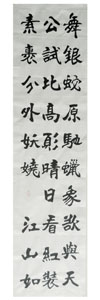 舞銀蛇原馳蠟象欲與天
公試比高須晴日看紅裝
素裹分外妖嬈江山如